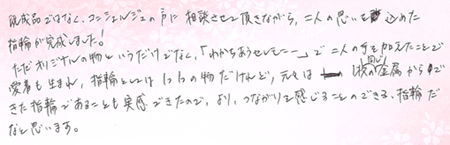 既成品ではなく、コンシェルジュの戸に相談させて頂きながら、二人の思いを込めた
指輪が完成しました！
ただオリジナルの物というだけでなく、「わかちあうセレモニー」で二人の手を加えたことで
愛着も生まれ、指輪としては1つ1つの物だけれど、元々は1枚の同じ金属からで
きた指輪であることも実感できたので、より、つながりを感じることのできる、指輪だ
なと思います。